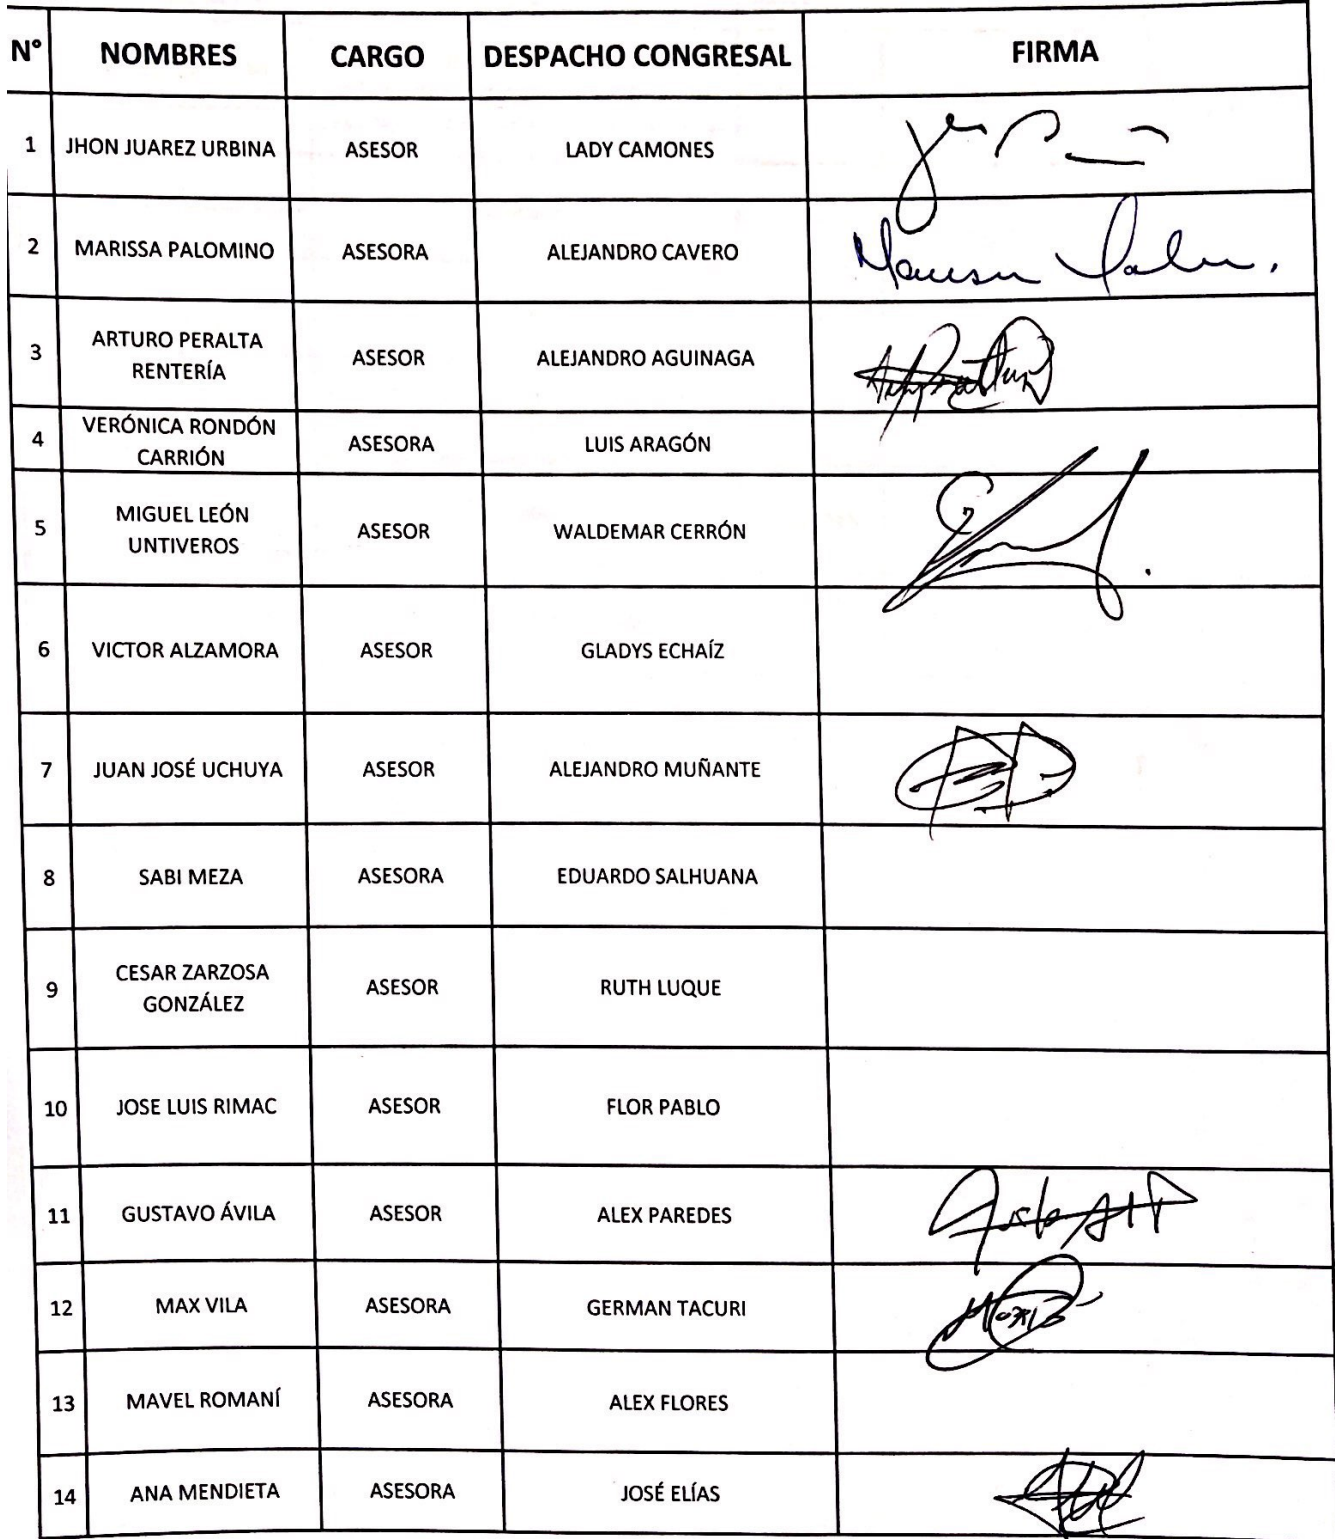 N° NOMBRES CARGO DESPACHO CONGRESAL FIRMA
1 JHON JUAREZ URBINA ASESOR LADY CAMONES
2 MARISSA PALOMINO ASESORA ALEJANDRO CAVERO
3 ARTURO PERALTA RENTERÍA ASESOR ALEJANDRO AGUINAGA
4 VERÓNICA RONDÓN CARRIÓN ASESORA LUIS ARAGÓN
5 MIGUEL LEÓN UNTIVEROS ASESOR WALDEMAR CERRÓN
6 VICTOR ALZAMORA ASESOR GLADYS ECHAÍZ
7 JUAN JOSÉ UCHUYA ASESOR ALEJANDRO MUÑANTE
8 SABI MEZA ASESORA EDUARDO SALHUANA
9 CESAR ZARZOSA GONZÁLEZ ASESOR RUTH LUQUE
10 JOSE LUIS RIMAC ASESOR FLOR PABLO
11 GUSTAVO ÁVILA ASESOR ALEX PAREDES
12 MAX VILA ASESORA GERMAN TACURI
13 MAVEL ROMANÍ ASESORA ALEX FLORES
14 ANA MENDIETA ASESORA JOSÉ ELÍAS